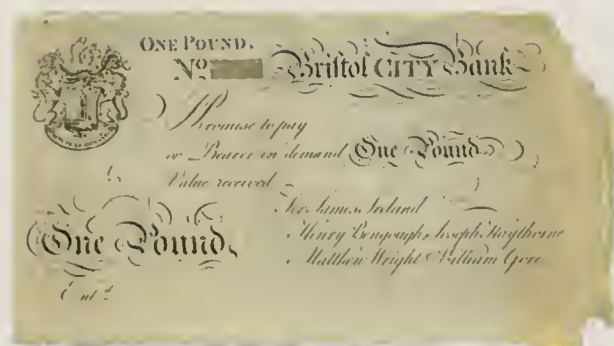 ONE POUND.
No Bristol CITY Bank
I Promise to pay
or Bearer on demand One Pound
Value received
For James Ireland
Henry Bengough, Joseph Haythorne
Matthew Wright & William Gore
One Pound
Entd